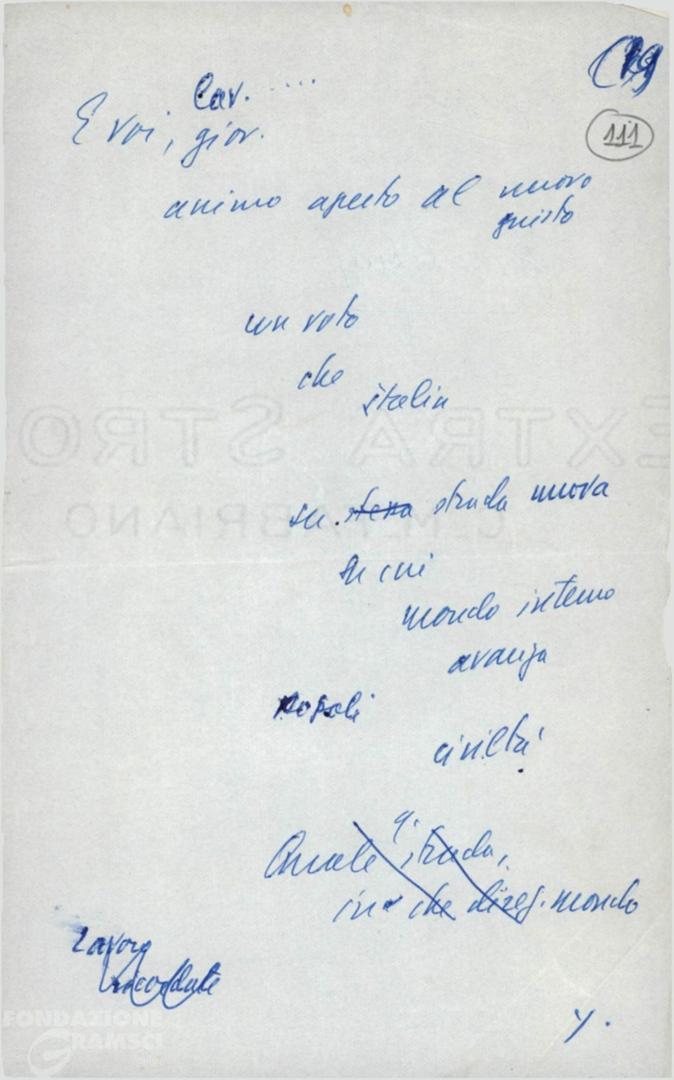 (19)
111
Lav. ....
E voi, giov.
animo aperto al nuovo
giusto
un voto
che
Italia
su strada nuova
su cui
mondo intero
avanza
popoli
civiltà
Quale strada,
in che direz. mondo
Lavoro
Y.
EXTRA STRO
C.M. FABRIANO
FONDAZIONE
GRAMSCI